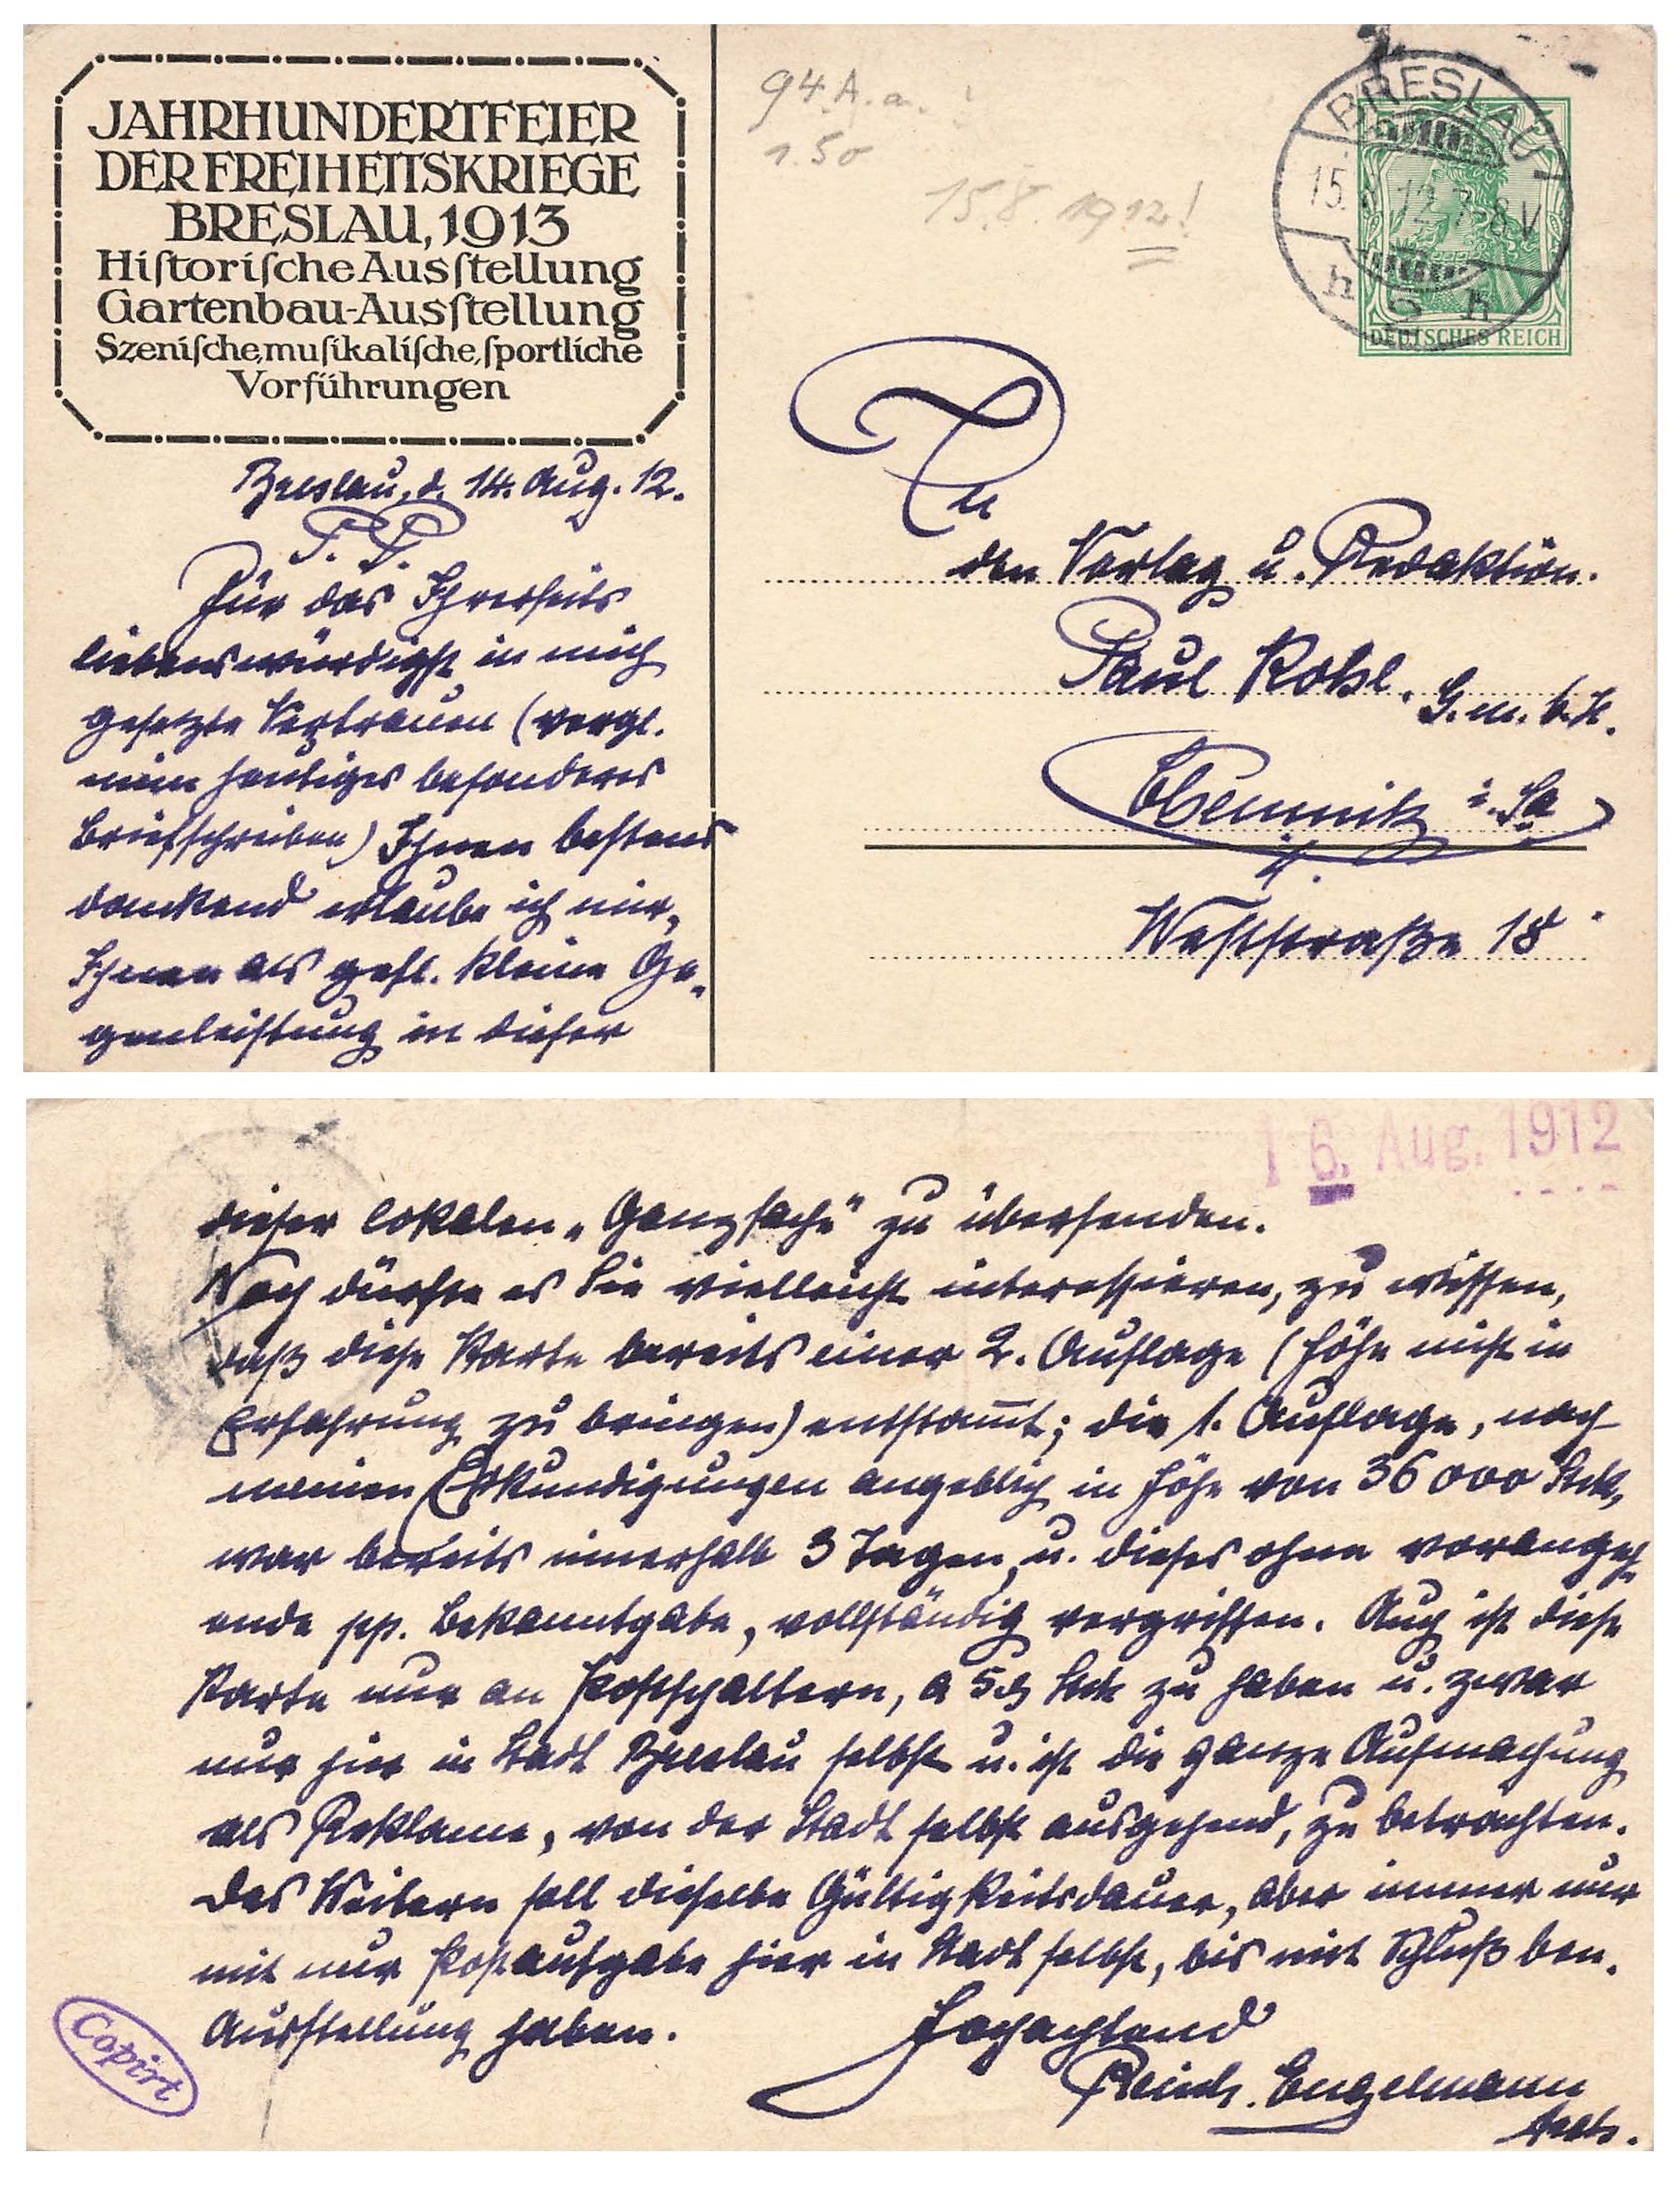 JAHRHUNDERTFEIER
DER FREIHEITSKRIEGE
BRESLAU, 1913
Hiſtoriſche Ausſtellung
Gartenbau-Ausſtellung
Szeniſche, muſikaliſche, ſportliche
Vorführungen
Breslau, d. 14. Aug. 12.
P. P.
Für das Ihrerseits
liebenswürdigst in mich
gesetzte Vertrauen (vergl.
mein heutiges besonderes
Briefschreiben) Ihnen bestens
dankend erlaube ich mir,
Ihnen als gefl. kleine Ge-
genleistung in dieser
94.A.a. !
1.50
15.8.1912!
BRESLAU
15. 12. 7-8V
DEUTSCHES REICH
An
den Verlag u. Redaktion.
Paul Kohl. G.m.b.H.
Chemnitz i. Sa
Weststraße 18
16. Aug. 1912
dieser lokalen „Ganzsache" zu übersenden.
Noch dürfte es Sie vielleicht interessieren, zu wissen,
daß diese Karte bereits einer 2. Auflage (Höhe nicht in
Erfahrung zu bringen) entstam̅t; die 1. Auflage, nach
meinen Erkundigungen angeblich in Höhe von 36000 Stck,
war bereits innerhalb 3 Tagen, u. dieses ohne vorangeh-
ende pp. Bekanntgabe, vollständig vergriffen. Auch ist diese
Karte nur an Postschaltern, a 5 ₰ Stck zu haben u. zwar
nur hier in Stadt Breslau selbst u. ist die ganze Aufmachung
als Reklame, von der Stadt selbst ausgehend, zu betrachten.
Des Weitern soll dieselbe Gültigkeitsdauer, aber immer nur
mit nur Postaufgabe hier in Stadt selbst, bis mit Schluß ben.
Ausstellung haben.
Hochachtend
Reinh. Engelmann
Copirt